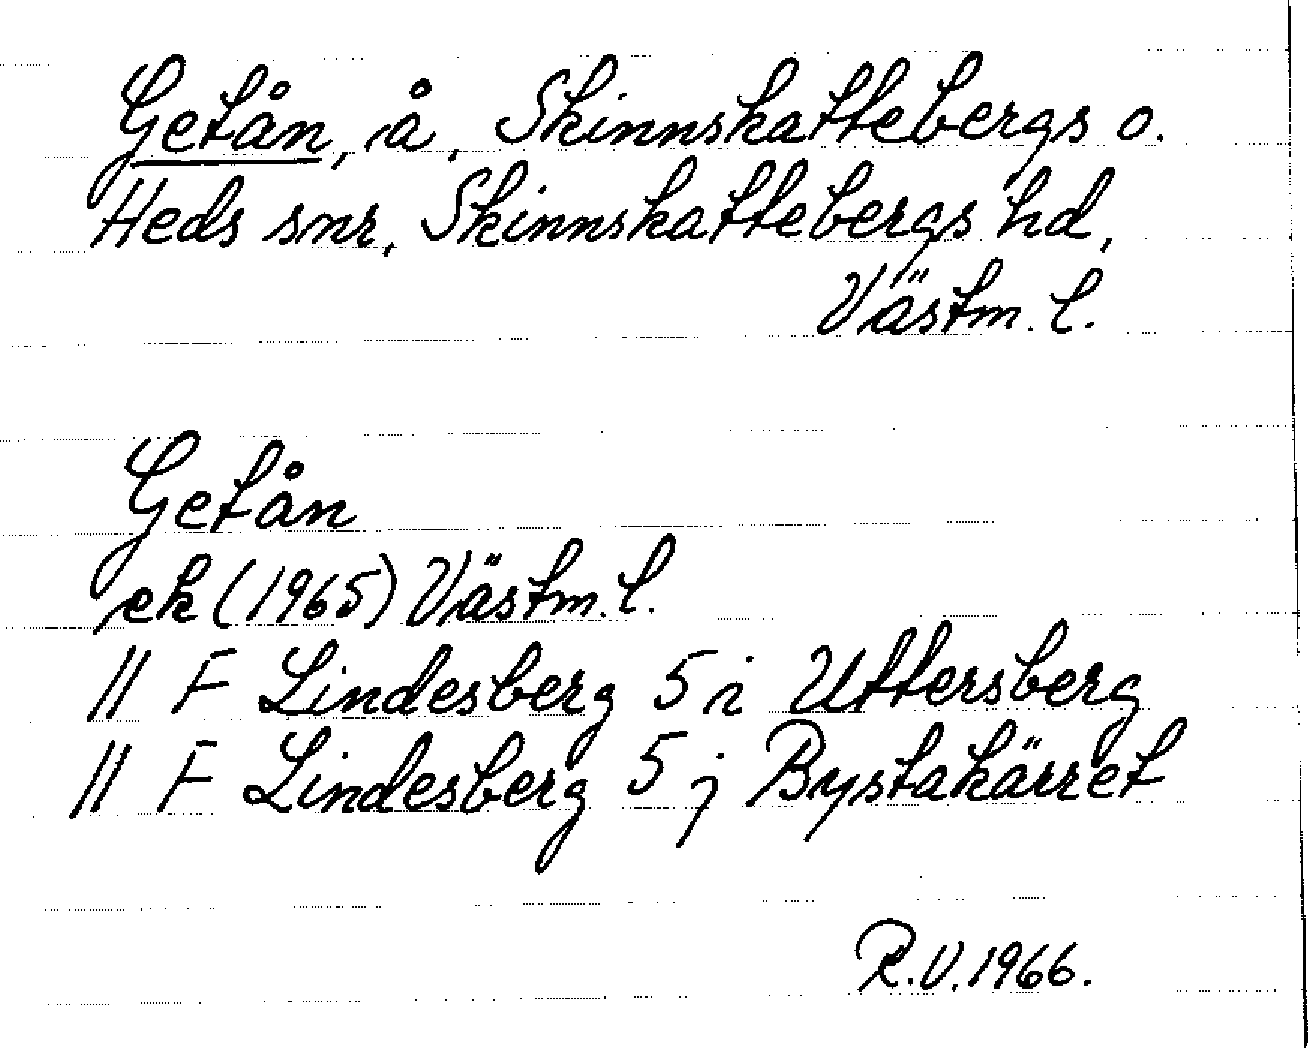 Getån, å, Skinnskattebergs o.
Heds snr, Skinnskattebergs hd,
Västm. l.
Getån
ek (1965) Västm. l.
11 F Lindesberg 5 i Uttersberg
11 F Lindesberg 5 j Bystakärret
R.V. 1966.